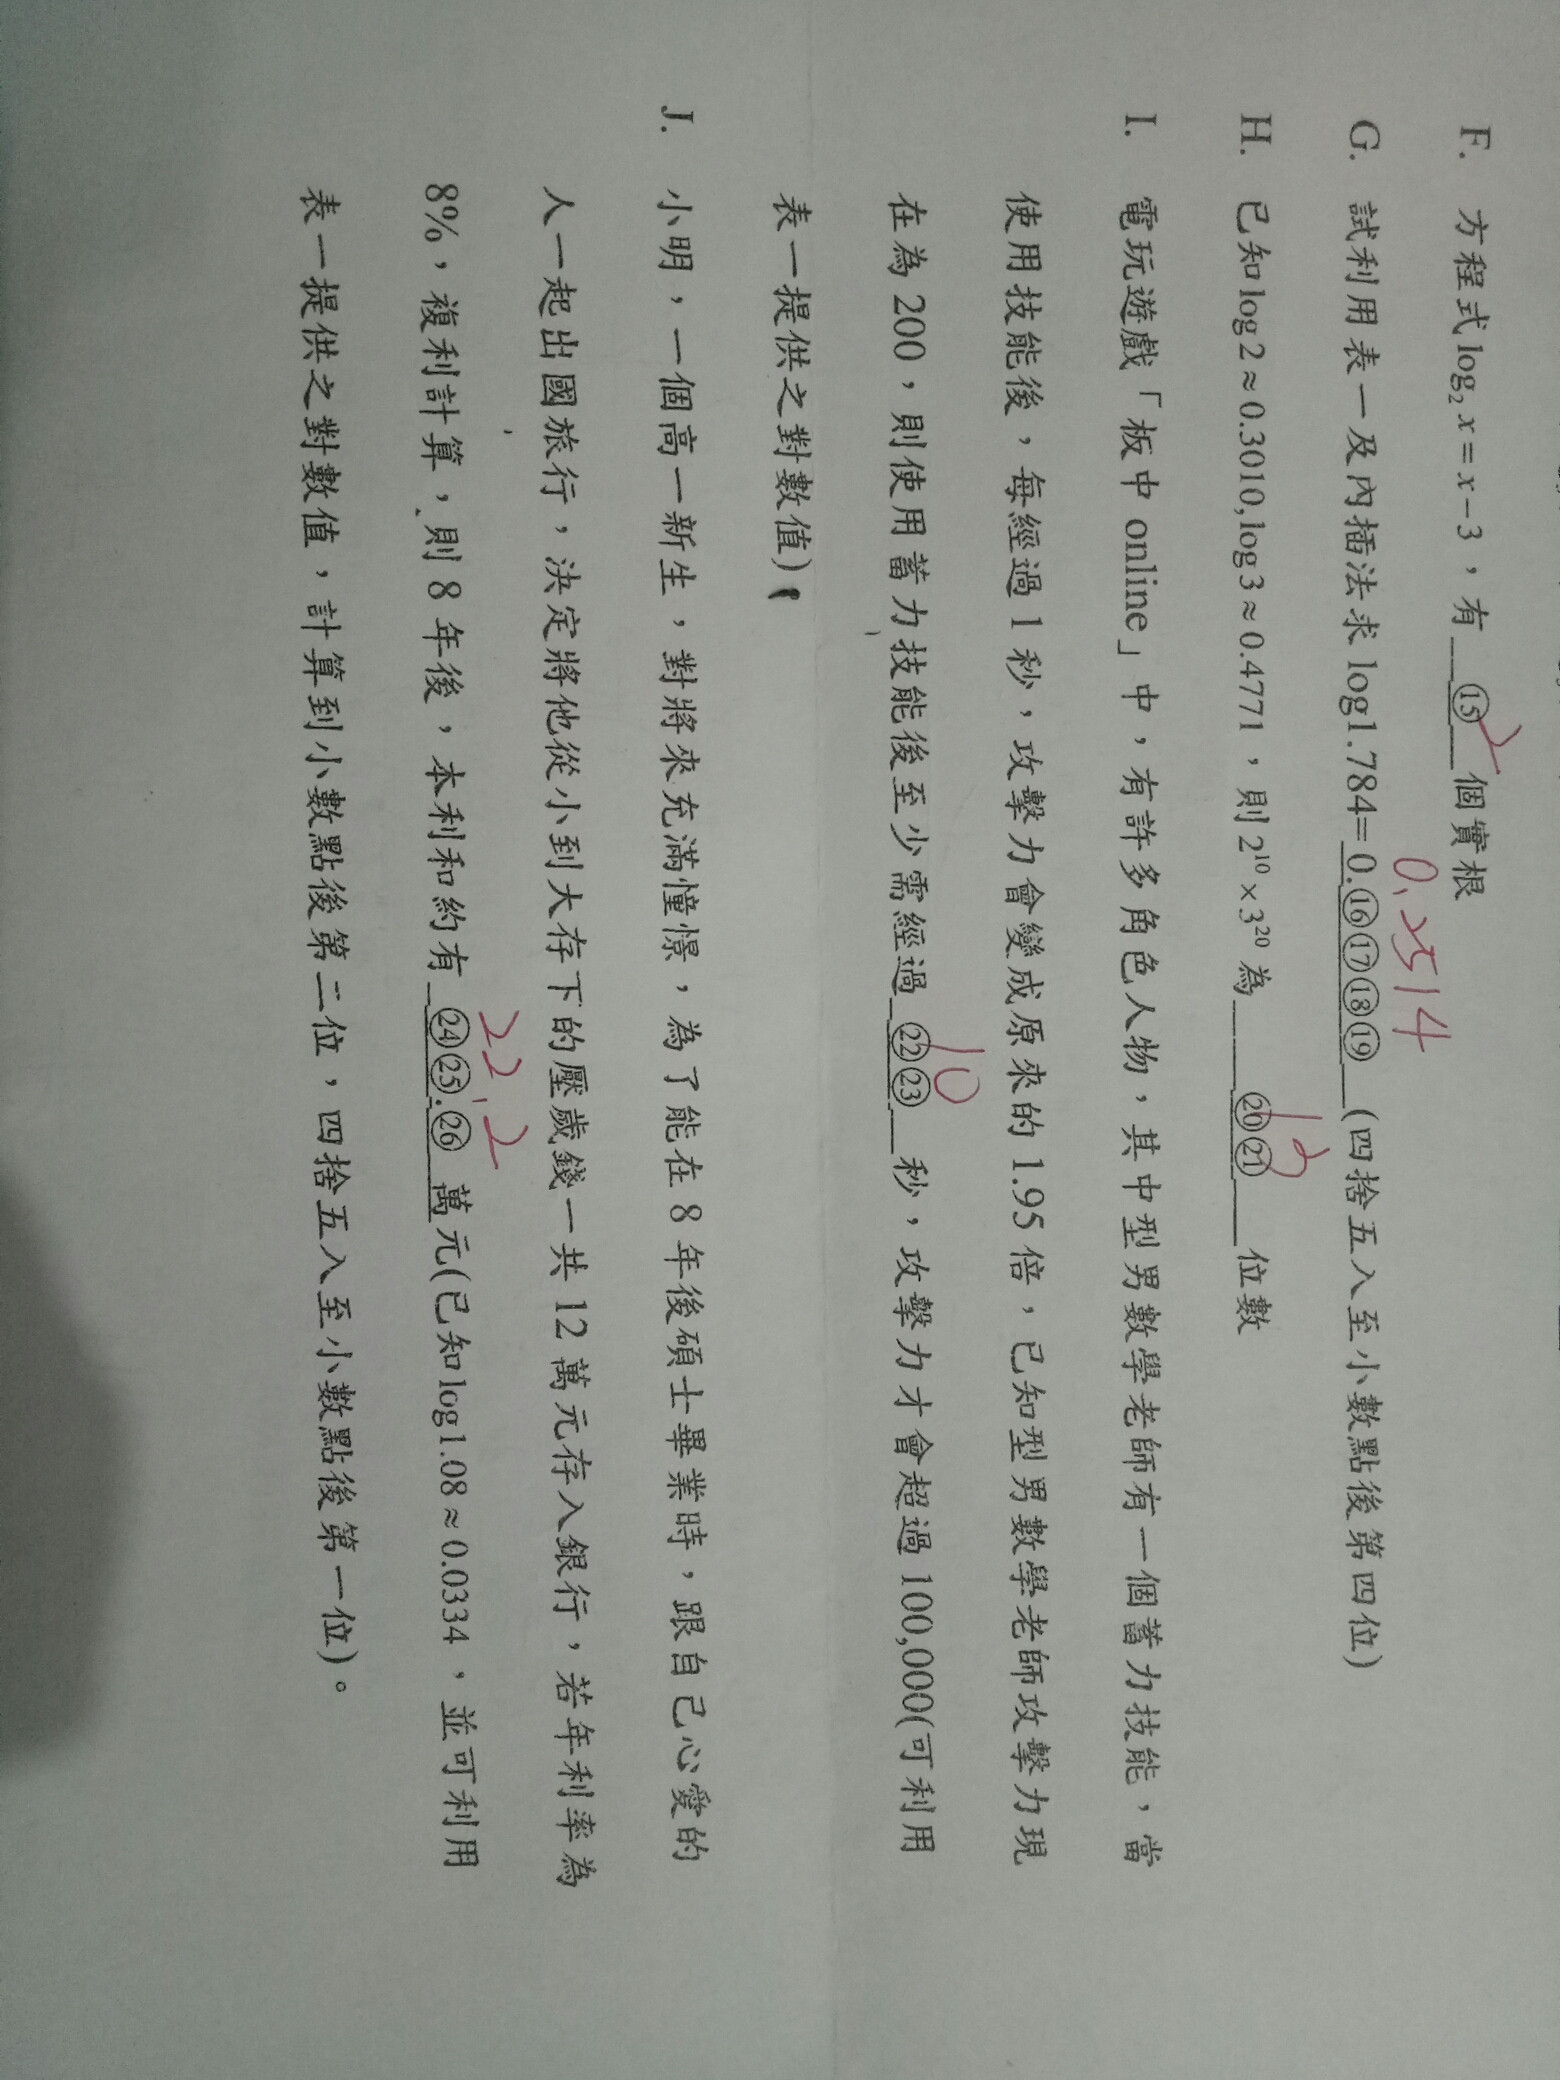 F. 方程式 log₂ x = x − 3，有 ⑮ 個實根
2
0.2514
G. 試利用表一及內插法求 log1.784= 0.⑯⑰⑱⑲ (四捨五入至小數點後第四位)
12
H. 已知 log 2 ≈ 0.3010, log 3 ≈ 0.4771，則 2¹⁰ × 3²⁰ 為 ⑳㉑ 位數
I. 電玩遊戲「板中 online」中，有許多角色人物，其中型男數學老師有一個蓄力技能，當
使用技能後，每經過 1 秒，攻擊力會變成原來的 1.95 倍，已知型男數學老師攻擊力現
10
在為 200，則使用蓄力技能後至少需經過 ㉒㉓ 秒，攻擊力才會超過 100,000(可利用
表一提供之對數值)
J. 小明，一個高一新生，對將來充滿憧憬，為了能在 8 年後碩士畢業時，跟自己心愛的
人一起出國旅行，決定將他從小到大存下的壓歲錢一共 12 萬元存入銀行，若年利率為
22.2
8%，複利計算，則 8 年後，本利和約有 ㉔㉕.㉖ 萬元(已知 log1.08 ≈ 0.0334，並可利用
表一提供之對數值，計算到小數點後第二位，四捨五入至小數點後第一位)。